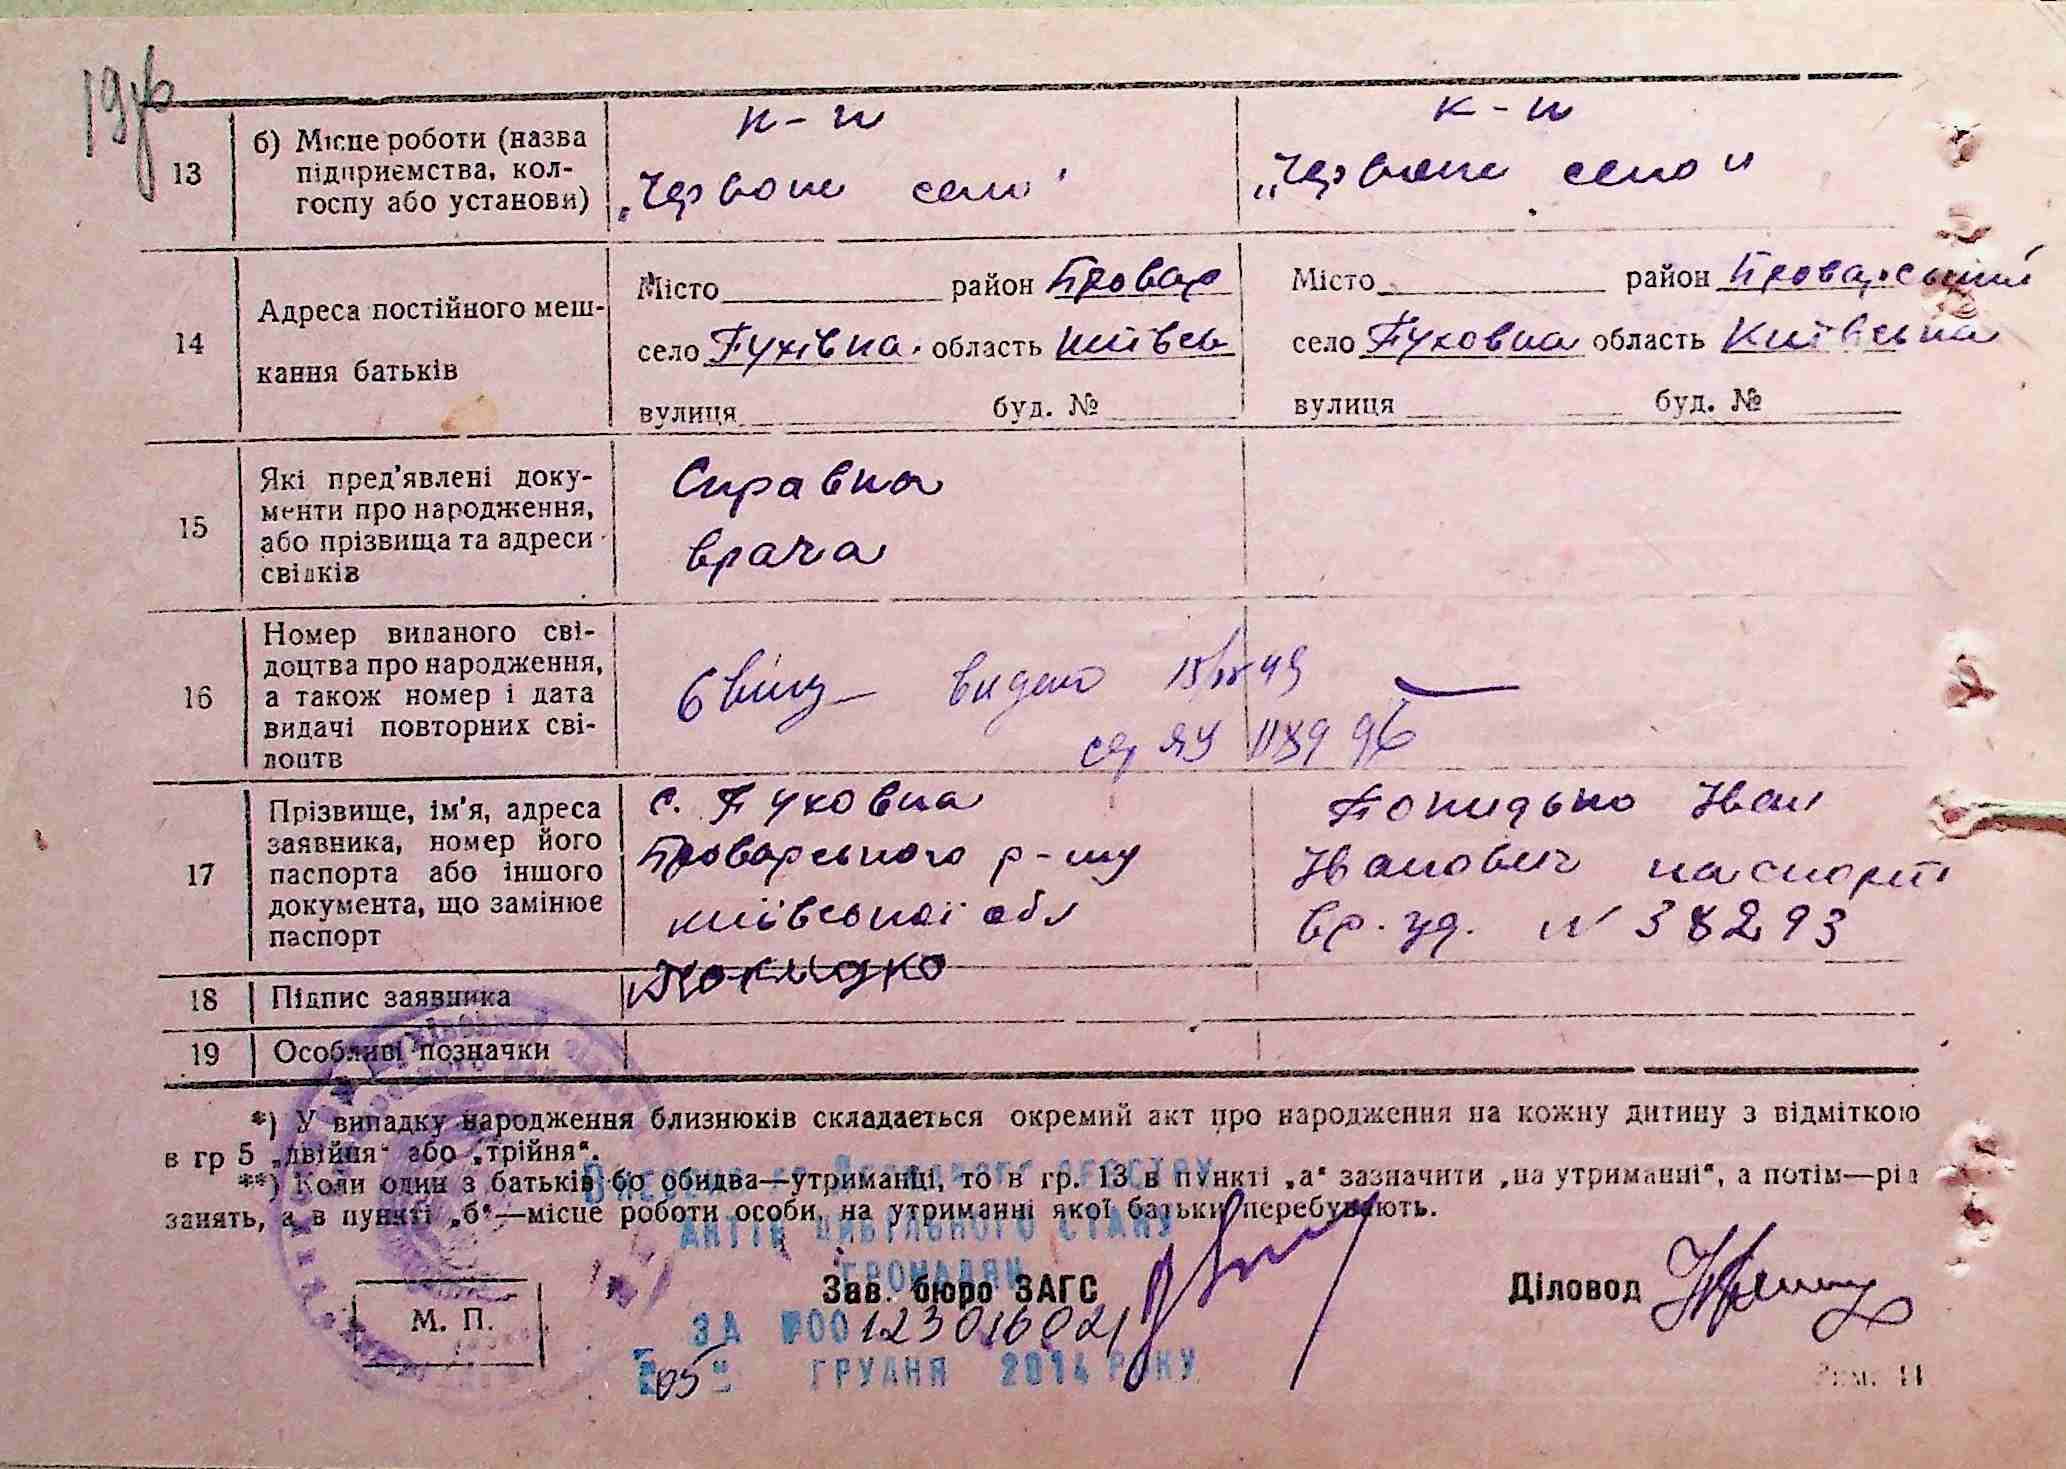 19
13
б) Місце роботи (назва
підприємства, кол-
госпу або установи)
к-п
„Червоне село"
к-п
„Червоне село"
14
Адреса постійного меш-
кання батьків
Місто район Бровар
село Пухівка область Київсь
вулиця буд. №
Місто район Броварський
село Пуховка область Київська
вулиця буд. №
15
Які пред'явлені доку-
менти про народження,
або прізвища та адреси
свідків
Справка
врача
16
Номер виданого сві-
доцтва про народження,
а також номер і дата
видачі повторних сві-
доцтв
видано 49
ЯУ
17
Прізвище, ім'я, адреса
заявника, номер його
паспорта або іншого
документа, що замінює
паспорт
с. Пуховка
Броварського р-ну
київської обл
Іван
Іванович паспорт
вр. уд. N 38293
18
Підпис заявника
19
Особливі позначки
*) У випадку народження близнюків складається окремий акт про народження на кожну дитину з відміткою
в гр 5 „двійня" або „трійня".
**) Коли один з батьків бо обидва—утриманці, то в гр. 13 в пункті „а" зазначити „на утриманні", а потім—рід
занять, а в пункті „б"—місце роботи особи, на утриманні якої батьки перебувають.
Внесено до Державного реєстру
АКТІВ ЦИВІЛЬНОГО СТАНУ
ГРОМАДЯН
Зав. бюро ЗАГС
Діловод
М. П.
ЗА №00123016021
"05" ГРУДНЯ 2014 РОКУ